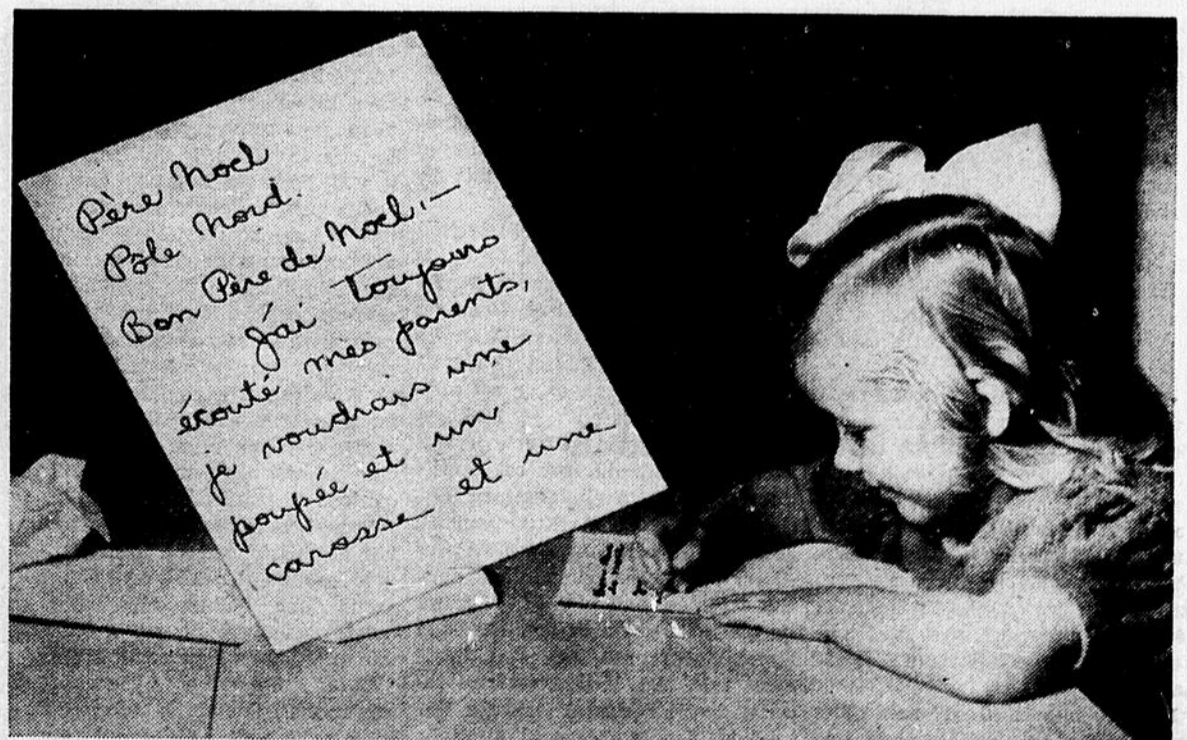 Père Noel
Pôle Nord.
Bon Père de Noel,—
J'ai toujours
écouté mes parents,
je voudrais une
poupée et un
carosse et une